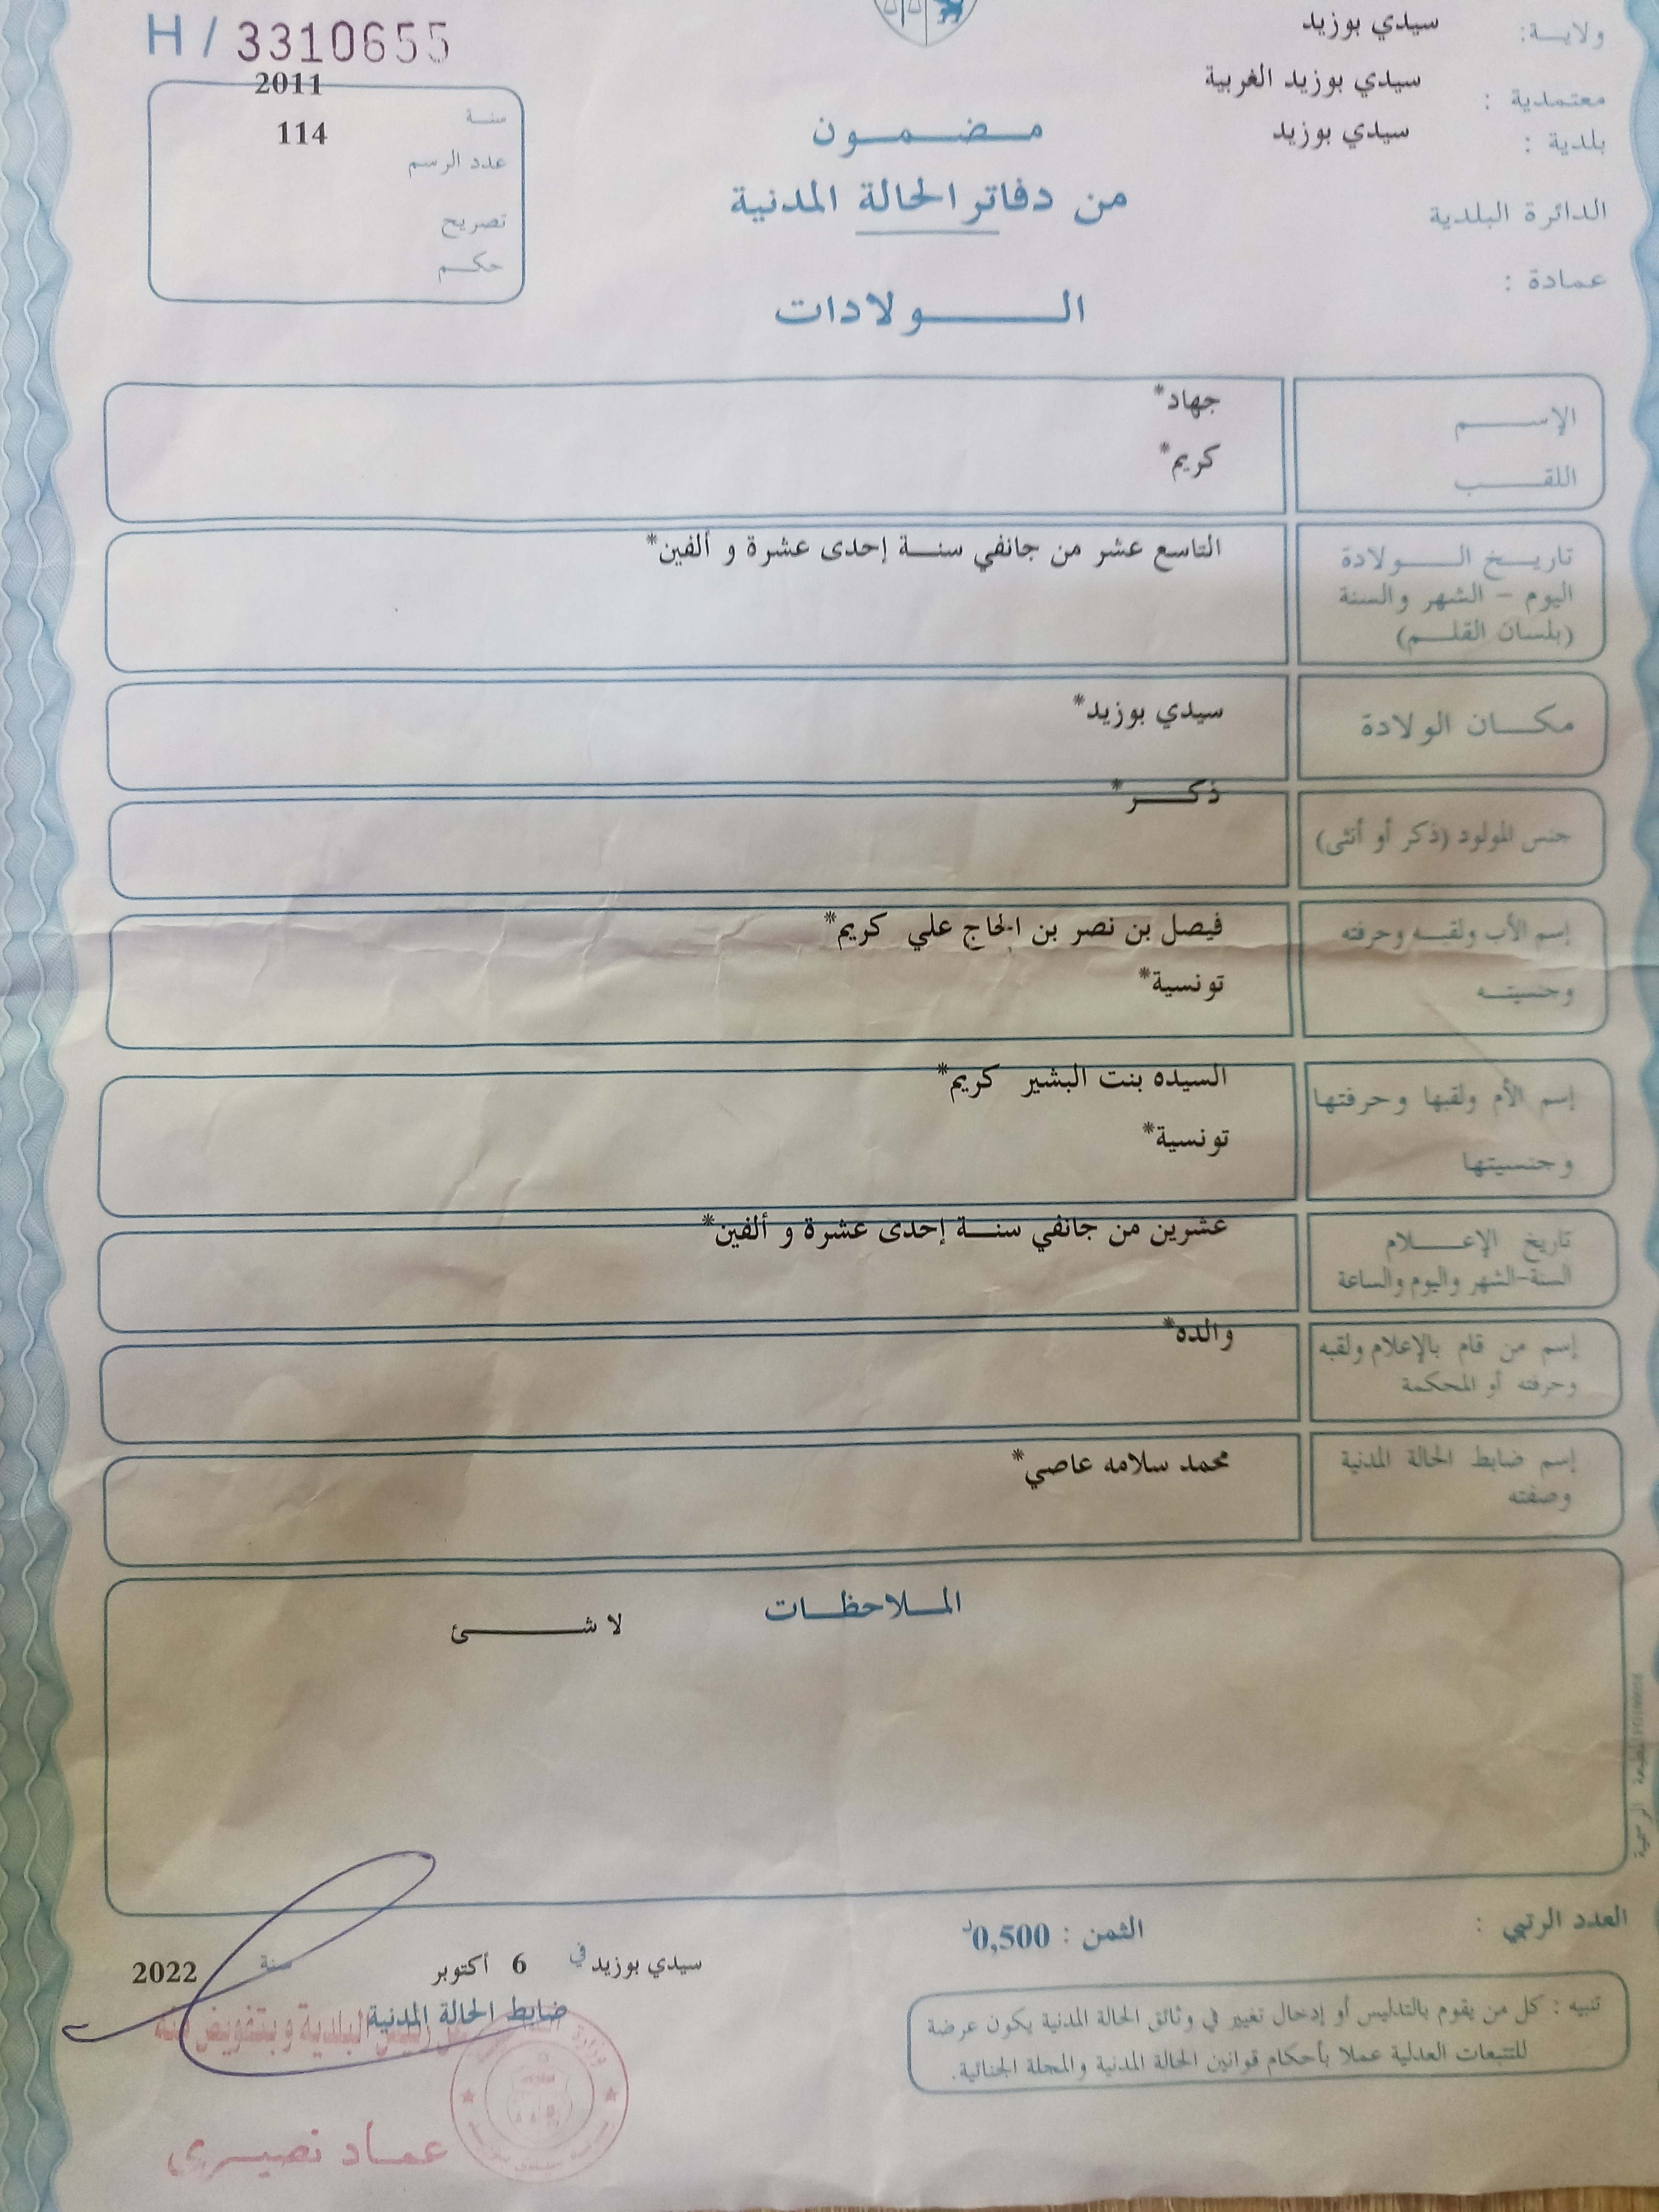 H / 3310655
ولايـــة: سيدي بوزيد
معتمدية : سيدي بوزيد الغربية
بلدية : سيدي بوزيد
الدائرة البلدية
عمادة :
سنــة 2011
عدد الرسم 114
تصريح
حكــم
مـضـمـــون
من دفاتر الحالة المدنية
الـــــولادات
الإســـــم جهاد*
اللقـــــب كريم*
تاريـــخ الـــــولادة التاسع عشر من جانفي سنــة إحدى عشرة و ألفين*
اليوم – الشهر والسنة
(بلسان القلـــم)
مكــان الولادة سيدي بوزيد*
جنس المولود (ذكر أو أنثى) ذكــــر*
إسم الأب ولقبــه وحرفته فيصل بن نصر بن الحاج علي كريم*
وجنسيتــه تونسية*
إسم الأم ولقبها وحرفتها السيده بنت البشير كريم*
وجنسيتها تونسية*
تاريخ الإعــــلام عشرين من جانفي سنــة إحدى عشرة و ألفين*
السنة-الشهر واليوم والساعة
إسم من قام بالإعلام ولقبه والده*
وحرفته أو المحكمة
إسم ضابط الحالة المدنية محمد سلامه عاصي*
وصفته
المــلاحظــات
لا شـــــئ
المطبعة الرسمية
العدد الرتبي :
الثمن : 0,500د
سيدي بوزيد في 6 أكتوبر سنة 2022
ضابط الحالة المدنية
رئيس البلدية وبتفويض منه
عمــاد نصيــري
تنبيه : كل من يقوم بالتدليس أو إدخال تغيير في وثائق الحالة المدنية يكون عرضة
للتتبعات العدلية عملا بأحكام قوانين الحالة المدنية والمجلة الجنائية.